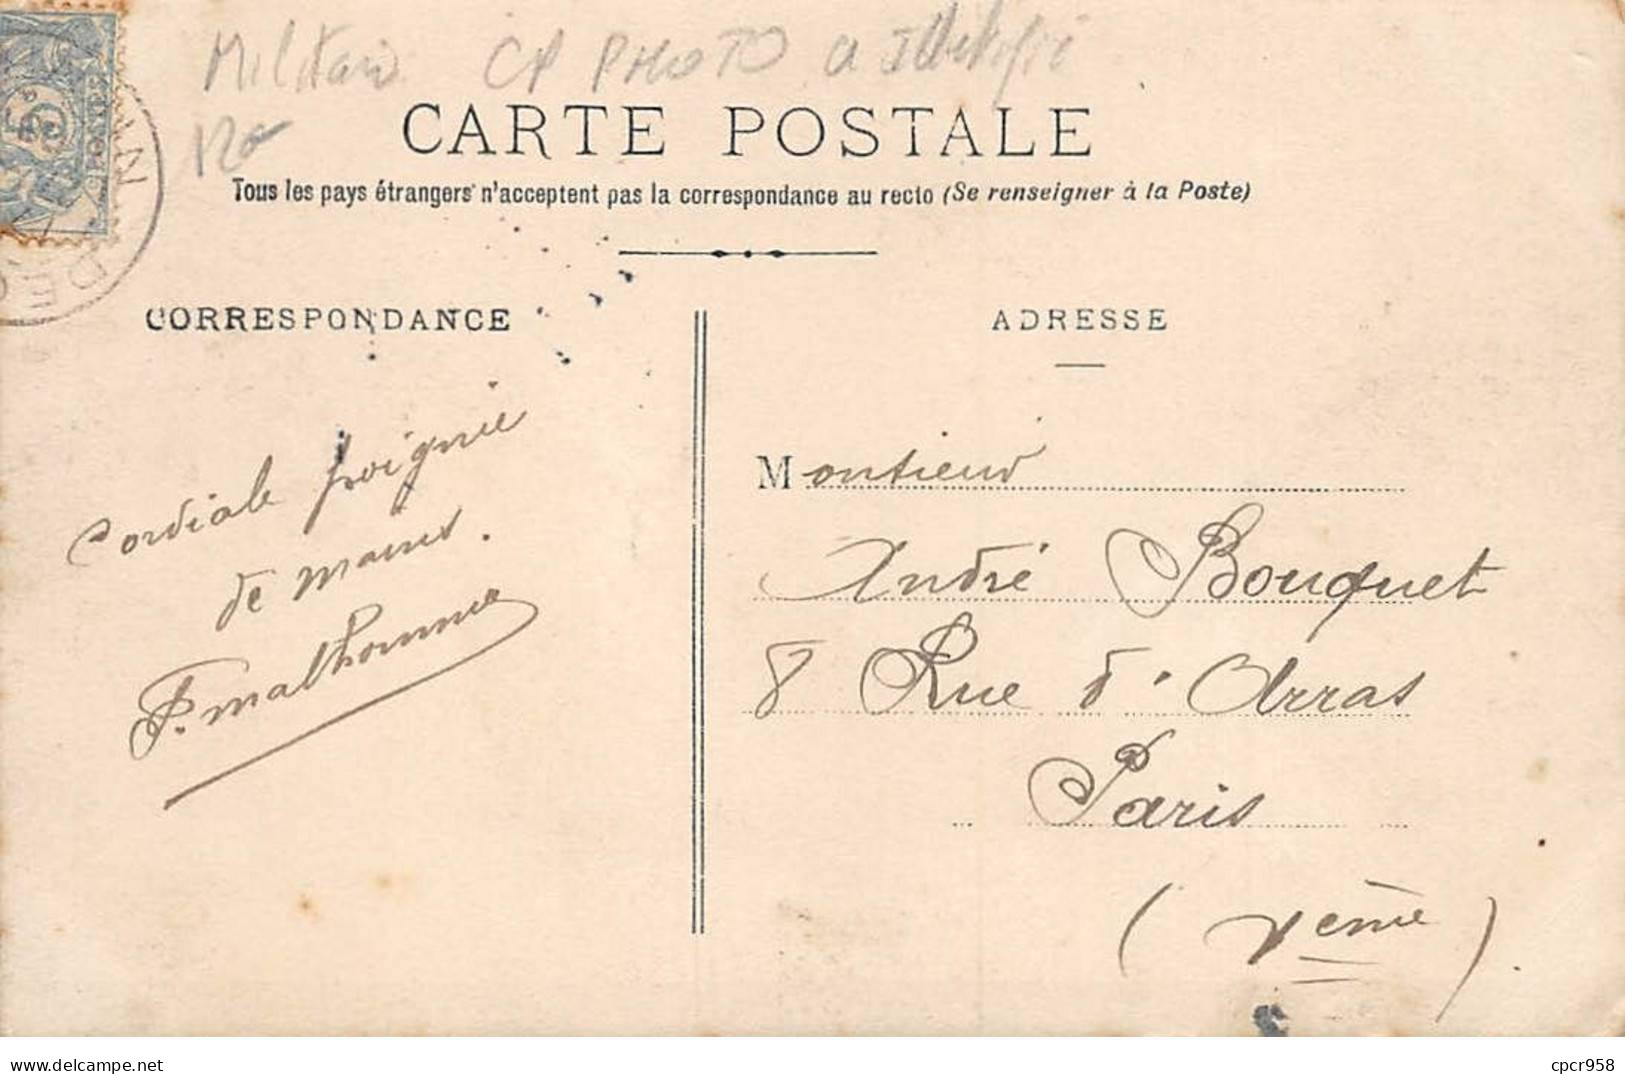 Militaria CP PHOTO a Identifié
120
CARTE POSTALE
Tous les pays étrangers n'acceptent pas la correspondance au recto (Se renseigner à la Poste)
CORRESPONDANCE
cordiale poignée
de mains.
P. malhomme
ADRESSE
Monsieur
André Bouquet
8 Rue d'Arras
Paris
(Vème).
delcampe.net
cpcr958